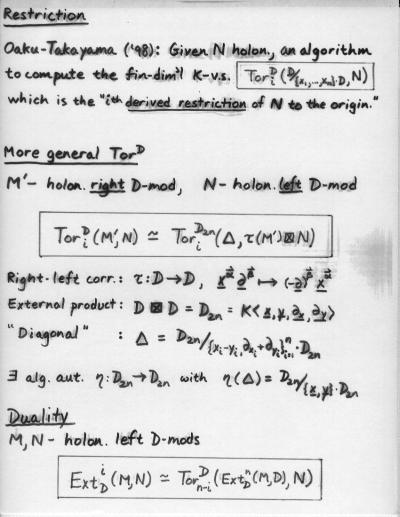 Restriction
Oaku-Takayama ('98): Given N holon., an algorithm
to compute the fin-dim'l K-v.s. Tor_i^D(D/{x_1,...,x_n}·D, N)
which is the "ith derived restriction of N to the origin."
More general Tor^D
M' - holon. right D-mod, N - holon. left D-mod
Tor_i^D(M', N) ≃ Tor_i^{D_{2n}}(Δ, τ(M') ⊠ N)
Right-left corr.: τ: D → D, x^α ∂^β ↦ (-∂)^β x^α
External product: D ⊠ D = D_{2n} = K<x, y, ∂_x, ∂_y>
"Diagonal" : Δ = D_{2n}/{x_i-y_i, ∂_{x_i}+∂_{y_i}}_{i=1}^n · D_{2n}
∃ alg. aut. η: D_{2n} → D_{2n} with η(Δ) = D_{2n}/{x, y}·D_{2n}
Duality
M, N - holon. left D-mods
Ext_D^i(M, N) ≃ Tor_{n-i}^D(Ext_D^n(M, D), N)